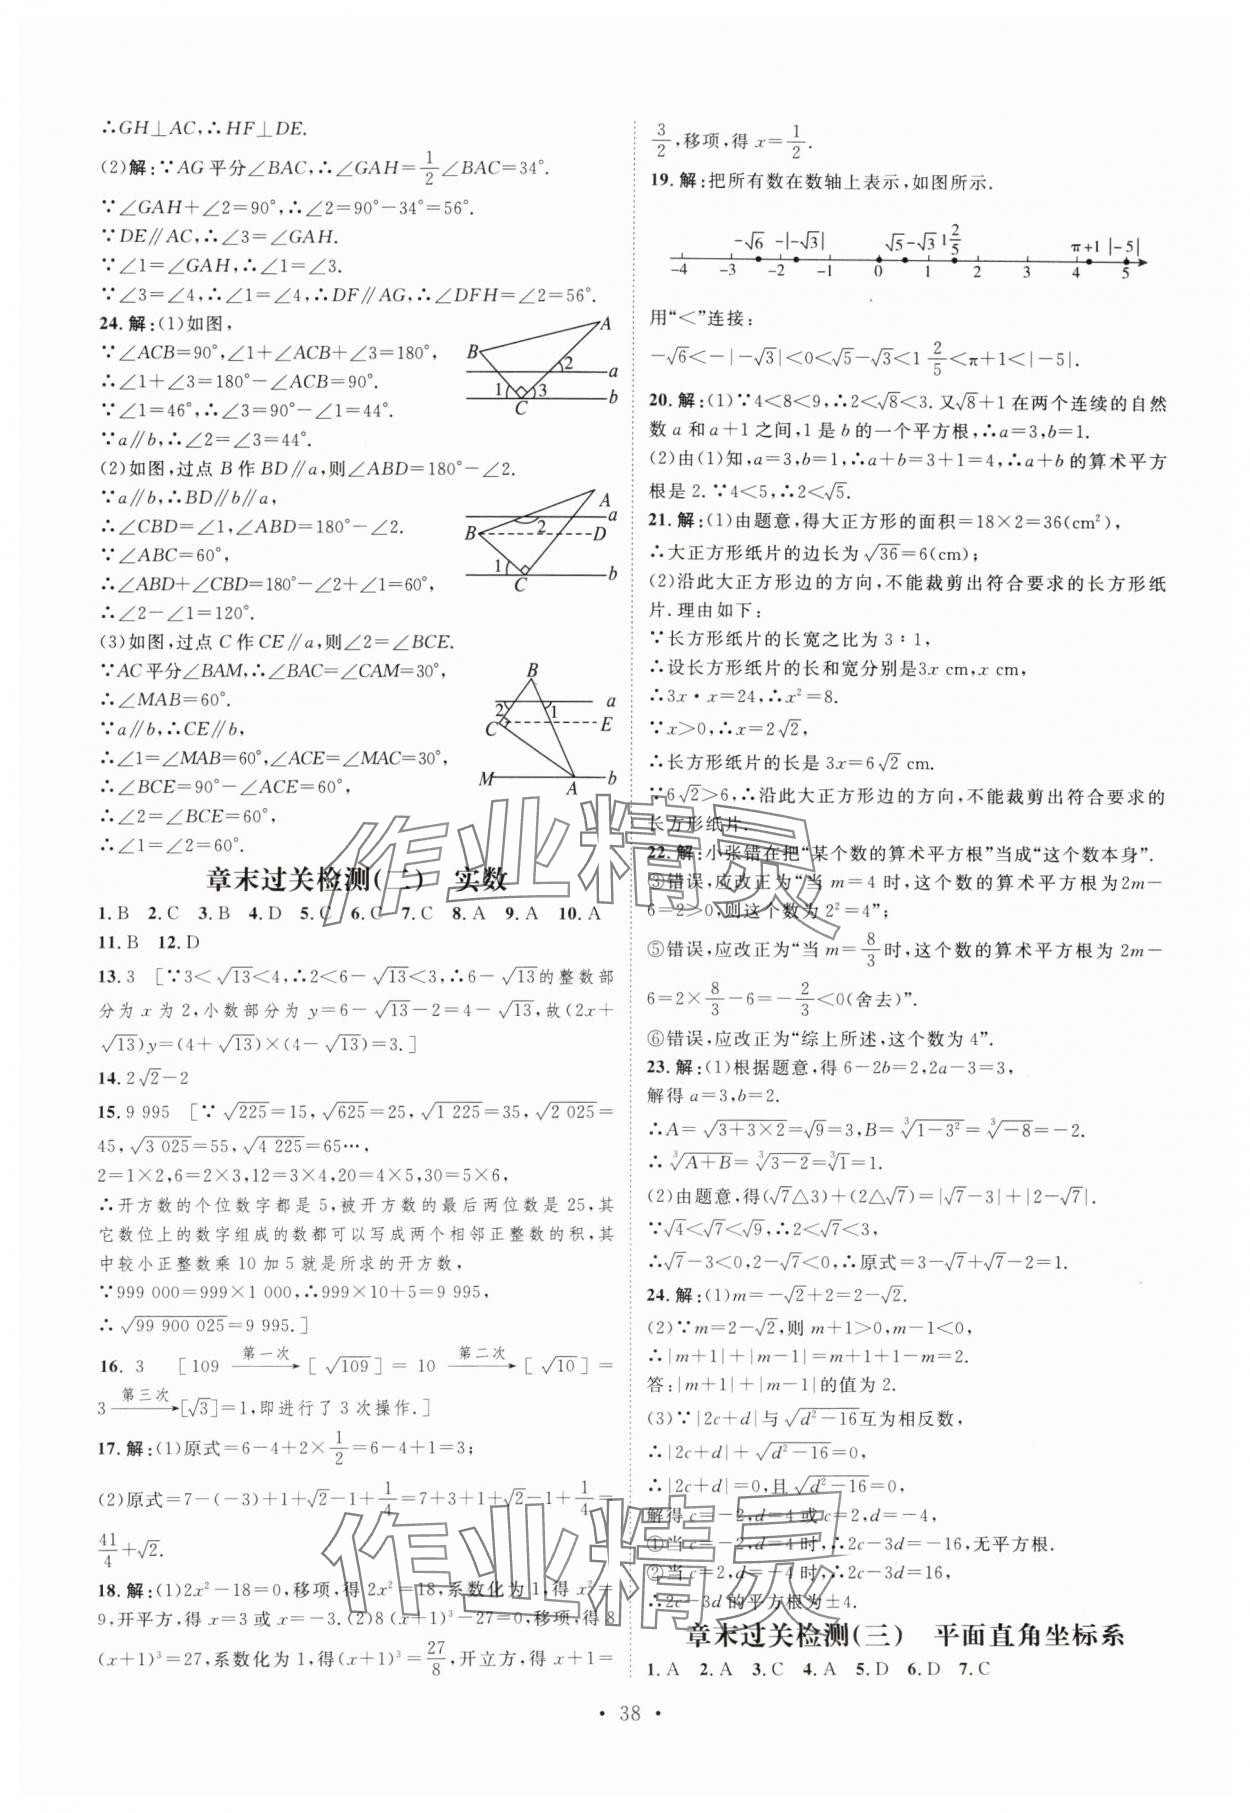 ∴GH⊥AC,∴HF⊥DE.
(2)解:∵AG平分∠BAC,∴∠GAH=1/2∠BAC=34°.
∵∠GAH+∠2=90°,∴∠2=90°-34°=56°.
∵DE∥AC,∴∠3=∠GAH.
∵∠1=∠GAH,∴∠1=∠3.
∵∠3=∠4,∴∠1=∠4,∴DF∥AG,∴∠DFH=∠2=56°.
24.解:(1)如图,
∵∠ACB=90°,∠1+∠ACB+∠3=180°,
∴∠1+∠3=180°-∠ACB=90°.
∵∠1=46°,∴∠3=90°-∠1=44°.
∵a∥b,∴∠2=∠3=44°.
A
B
2
a
1
3
C
b
(2)如图,过点B作BD∥a,则∠ABD=180°-∠2.
∵a∥b,∴BD∥b∥a,
∴∠CBD=∠1,∠ABD=180°-∠2.
∵∠ABC=60°,
∴∠ABD+∠CBD=180°-∠2+∠1=60°,
∴∠2-∠1=120°.
A
a
2
B
D
1
C
b
(3)如图,过点C作CE∥a,则∠2=∠BCE.
∵AC平分∠BAM,∴∠BAC=∠CAM=30°,
∴∠MAB=60°.
∵a∥b,∴CE∥b,
∴∠1=∠MAB=60°,∠ACE=∠MAC=30°.
∴∠BCE=90°-∠ACE=60°.
∴∠2=∠BCE=60°,
∴∠1=∠2=60°.
B
a
2
1
C
E
M
A
b
章末过关检测(二) 实数
1.B 2.C 3.B 4.D 5.C 6.C 7.C 8.A 9.A 10.A
11.B 12.D
13.3 [∵3<√13<4,∴2<6-√13<3,∴6-√13的整数部
分为x为2,小数部分为y=6-√13-2=4-√13,故(2x+
√13)y=(4+√13)×(4-√13)=3.]
14.2√2-2
15.9 995 [∵√225=15,√625=25,√1 225=35,√2 025=
45,√3 025=55,√4 225=65…,
2=1×2,6=2×3,12=3×4,20=4×5,30=5×6,
∴开方数的个位数字都是5,被开方数的最后两位数是25,其
它数位上的数字组成的数都可以写成两个相邻正整数的积,其
中较小正整数乘10加5就是所求的开方数,
∵999 000=999×1 000,∴999×10+5=9 995,
∴√99 900 025=9 995.]
16.3 [109 第一次→[√109]=10 第二次→[√10]=
3 第三次→[√3]=1,即进行了3次操作.]
17.解:(1)原式=6-4+2×1/2=6-4+1=3;
(2)原式=7-(-3)+1+√2-1+1/4=7+3+1+√2-1+1/4=
41/4+√2.
18.解:(1)2x²-18=0,移项,得2x²=18,系数化为1,得x²=
9,开平方,得x=3或x=-3.(2)8(x+1)³-27=0,移项,得8
(x+1)³=27,系数化为1,得(x+1)³=27/8,开立方,得x+1=
3/2,移项,得x=1/2.
19.解:把所有数在数轴上表示,如图所示.
-√6 -|-√3| √5-√3 1 2/5 π+1 |-5|
-4 -3 -2 -1 0 1 2 3 4 5
用“<”连接:
-√6<-|-√3|<0<√5-√3<1 2/5<π+1<|-5|.
20.解:(1)∵4<8<9,∴2<√8<3.又√8+1在两个连续的自然
数a和a+1之间,1是b的一个平方根,∴a=3,b=1.
(2)由(1)知,a=3,b=1,∴a+b=3+1=4,∴a+b的算术平方
根是2.∵4<5,∴2<√5.
21.解:(1)由题意,得大正方形的面积=18×2=36(cm²),
∴大正方形纸片的边长为√36=6(cm);
(2)沿此大正方形边的方向,不能裁剪出符合要求的长方形纸
片.理由如下:
∵长方形纸片的长宽之比为3∶1,
∴设长方形纸片的长和宽分别是3x cm,x cm,
∴3x·x=24,∴x²=8.
∵x>0,∴x=2√2,
∴长方形纸片的长是3x=6√2 cm.
∵6√2>6,∴沿此大正方形边的方向,不能裁剪出符合要求的
长方形纸片.
22.解:小张错在把“某个数的算术平方根”当成“这个数本身”.
③错误,应改正为“当m=4时,这个数的算术平方根为2m-
6=2>0,则这个数为2²=4”;
⑤错误,应改正为“当m=8/3时,这个数的算术平方根为2m-
6=2×8/3-6=-2/3<0(舍去)”.
⑥错误,应改正为“综上所述,这个数为4”.
23.解:(1)根据题意,得6-2b=2,2a-3=3,
解得a=3,b=2.
∴A=√3+3×2=√9=3,B=³√1-3²=³√-8=-2.
∴³√A+B=³√3-2=³√1=1.
(2)由题意,得(√7△3)+(2△√7)=|√7-3|+|2-√7|.
∵√4<√7<√9,∴2<√7<3,
∴√7-3<0,2-√7<0,∴原式=3-√7+√7-2=1.
24.解:(1)m=-√2+2=2-√2.
(2)∵m=2-√2,则m+1>0,m-1<0,
∴|m+1|+|m-1|=m+1+1-m=2.
答:|m+1|+|m-1|的值为2.
(3)∵|2c+d|与√d²-16互为相反数,
∴|2c+d|+√d²-16=0,
∴|2c+d|=0,且√d²-16=0,
解得c=-2,d=4或c=2,d=-4,
①当c=-2,d=4时,∴2c-3d=-16,无平方根.
②当c=2,d=-4时,∴2c-3d=16,
∴2c-3d的平方根为±4.
章末过关检测(三) 平面直角坐标系
1.A 2.A 3.C 4.A 5.D 6.D 7.C
• 38 •
作业精灵
作业精灵